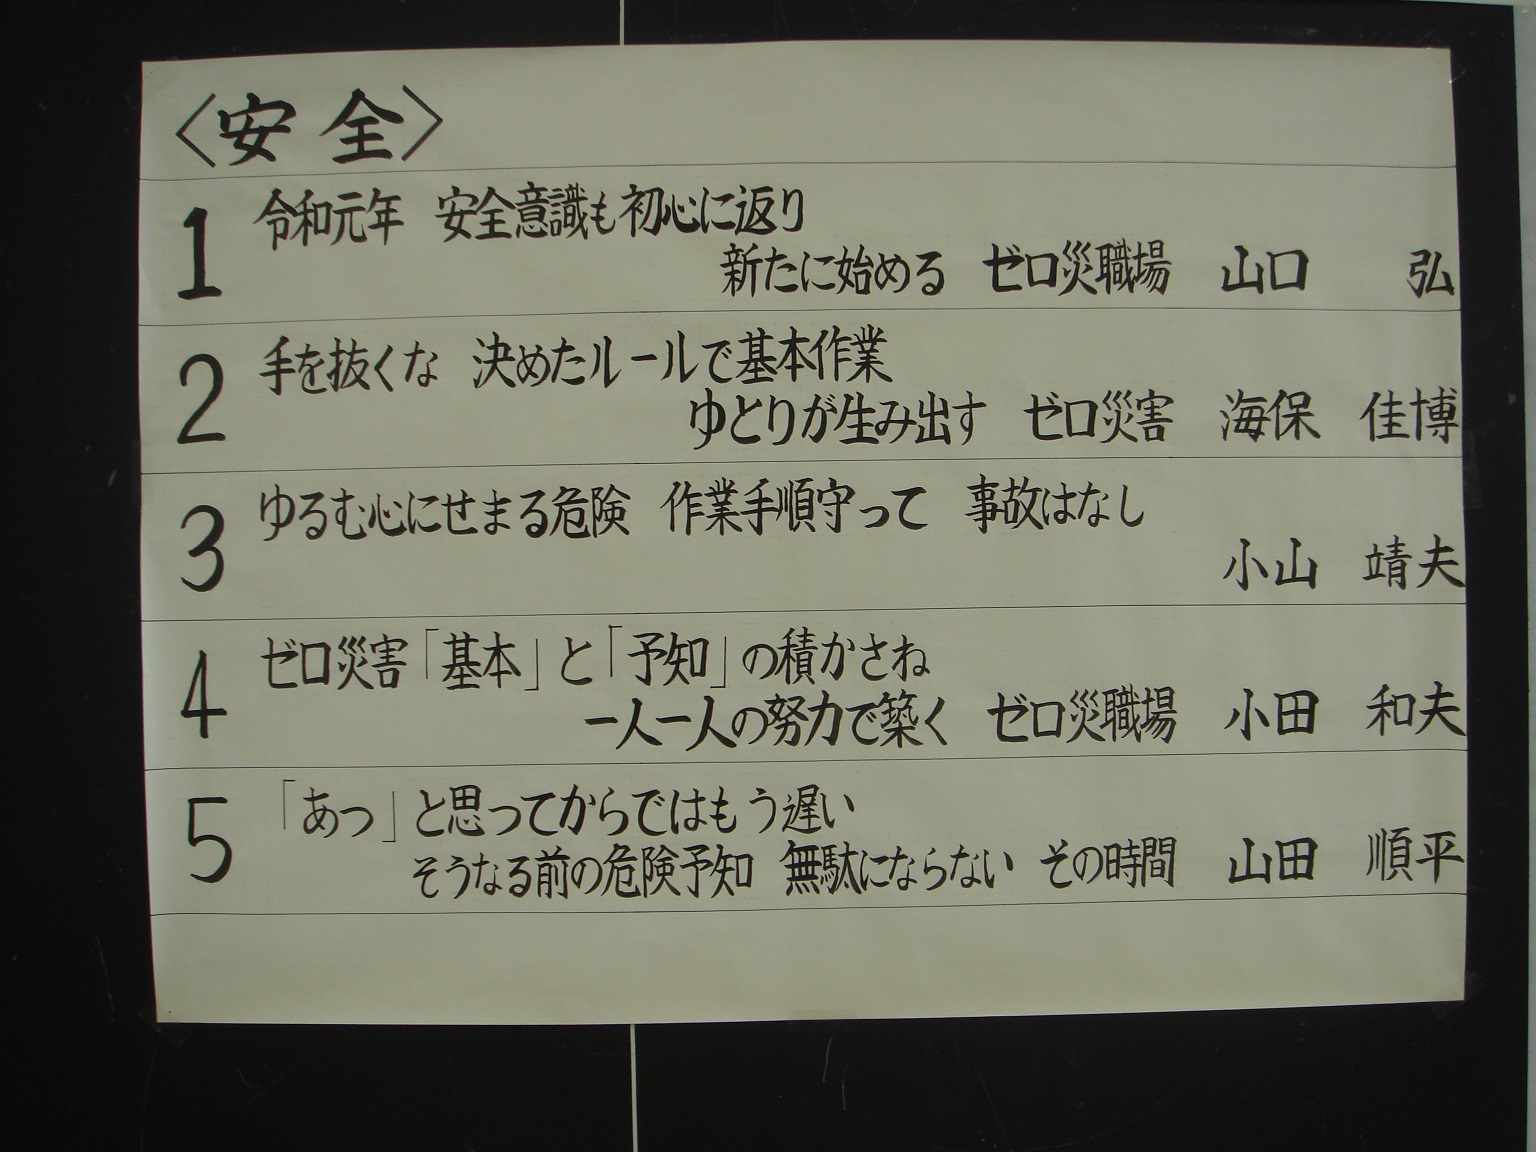 〈安全〉
1 令和元年 安全意識も初心に返り
新たに始める ゼロ災職場 山口 弘
2 手を抜くな 決めたルールで基本作業
ゆとりが生み出す ゼロ災害 海保 佳博
3 ゆるむ心にせまる危険 作業手順守って 事故はなし
小山 靖夫
4 ゼロ災害「基本」と「予知」の積かさね
一人一人の努力で築く ゼロ災職場 小田 和夫
5 「あっ」と思ってからではもう遅い
そうなる前の危険予知 無駄にならない その時間 山田 順平